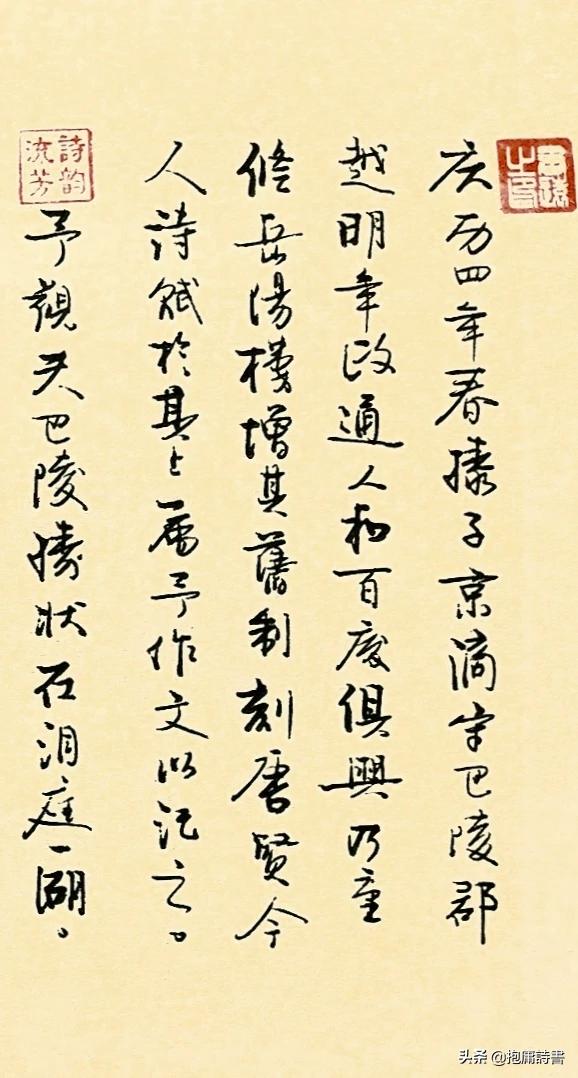 庆历四年春滕子京谪守巴陵郡
越明年政通人和百废俱興乃重
修岳陽樓增其舊制刻唐賢今
人詩賦於其上屬予作文以記之。
予觀夫巴陵勝狀在洞庭一湖。
詩韵流芳
头条 @抱庸詩書